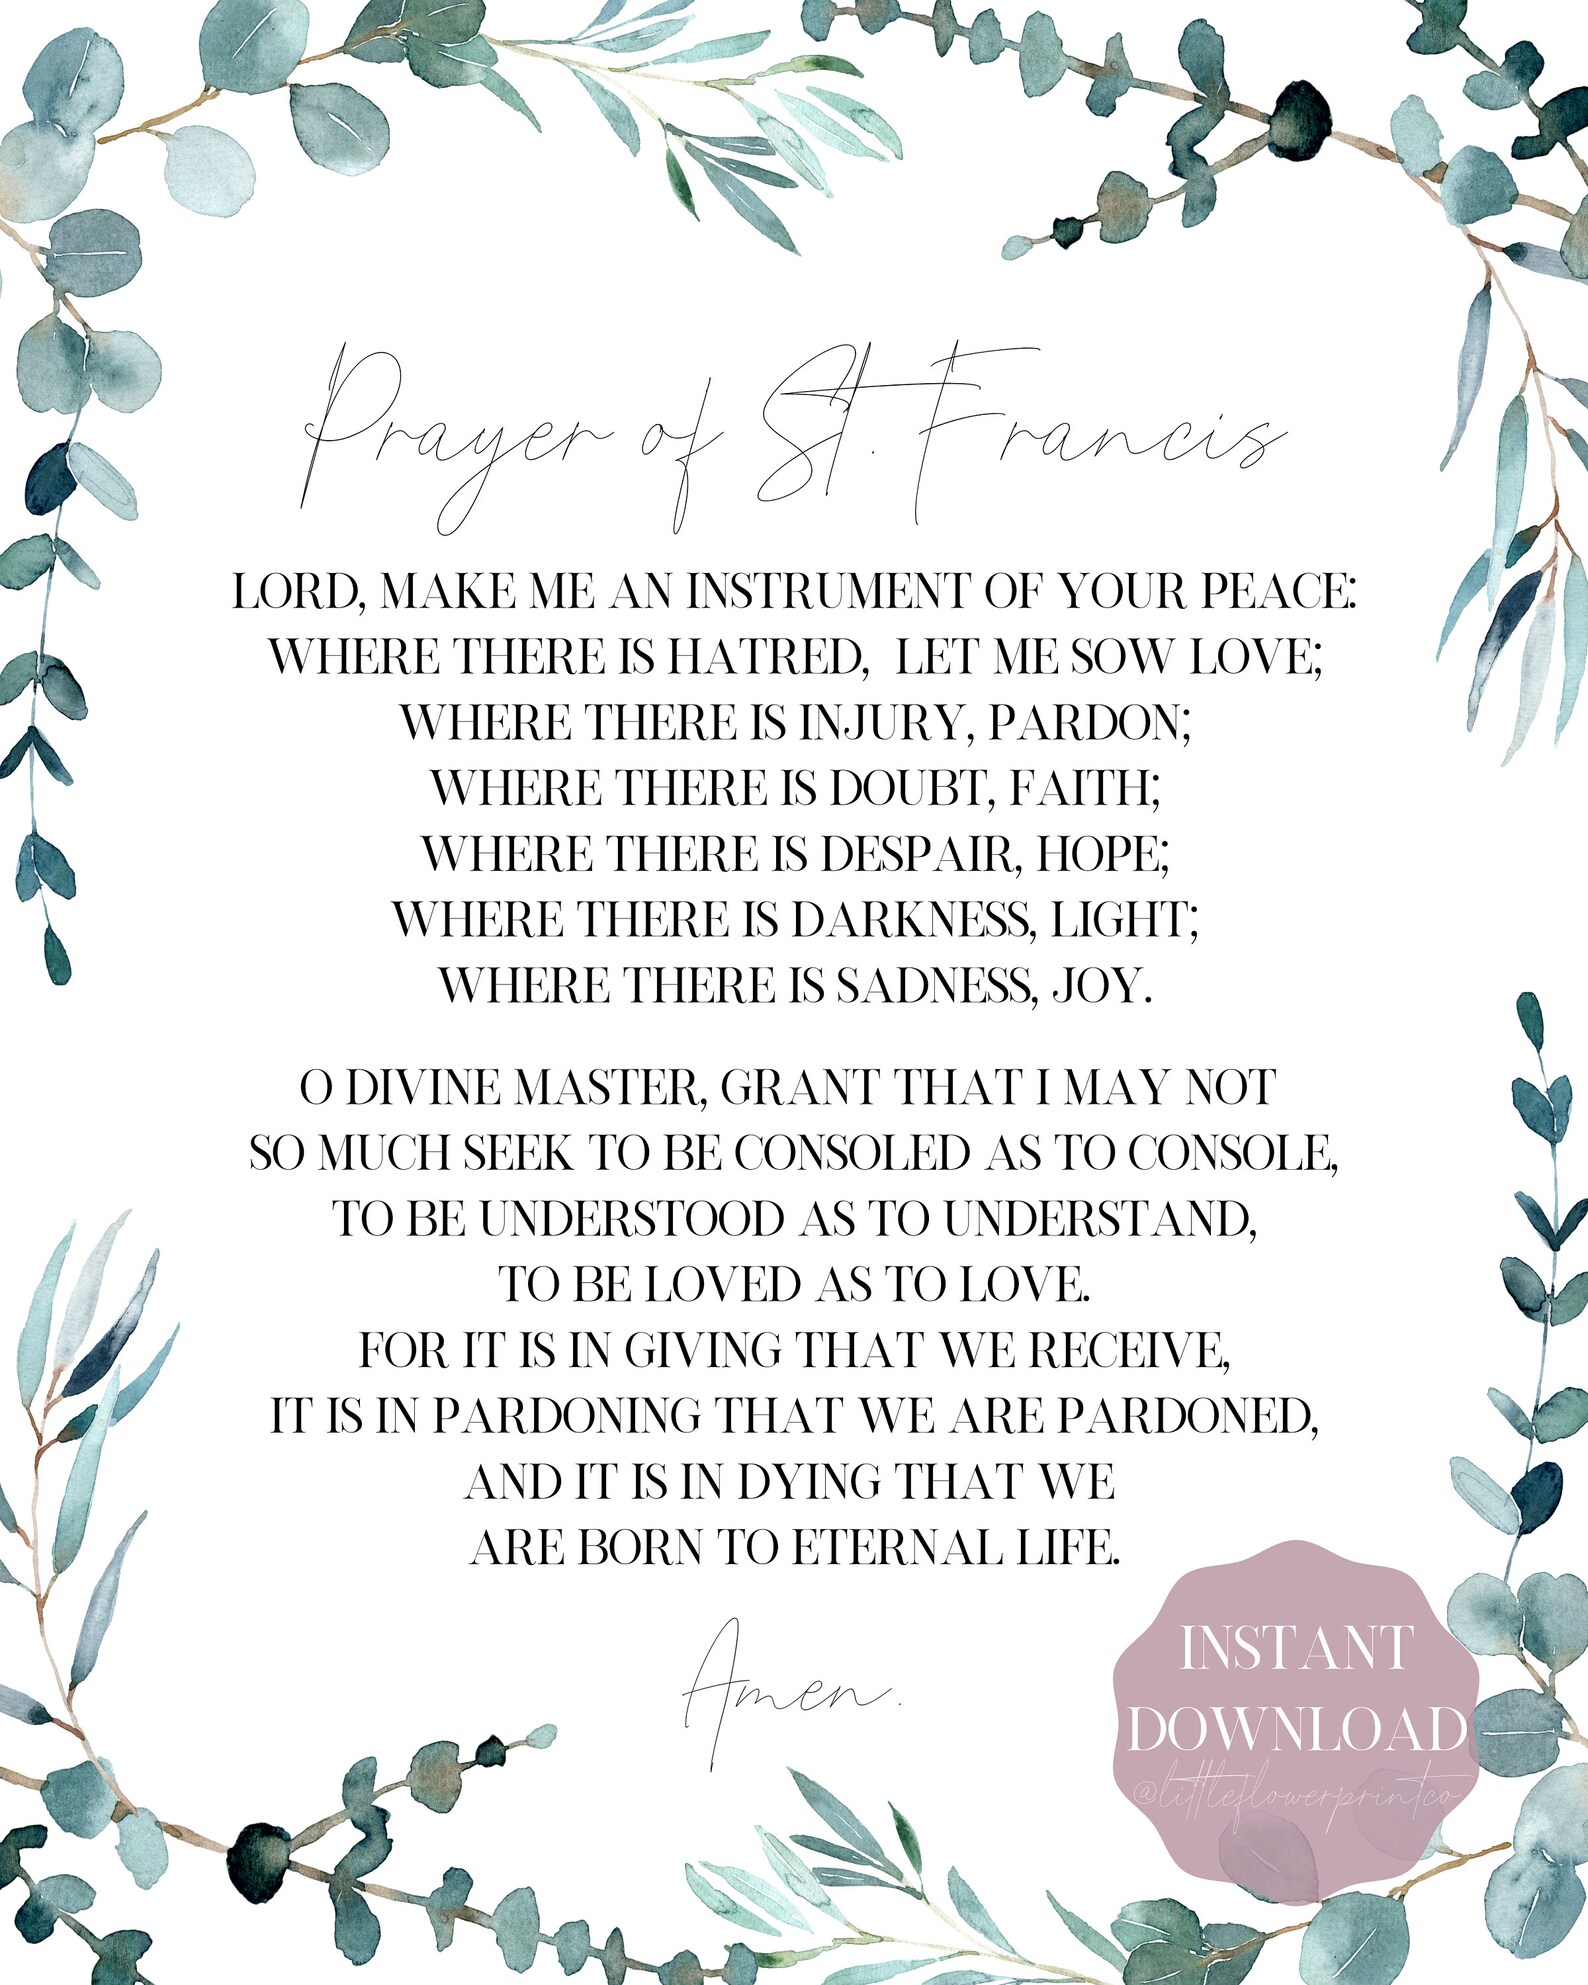 Prayer of St. Francis
LORD, MAKE ME AN INSTRUMENT OF YOUR PEACE:
WHERE THERE IS HATRED, LET ME SOW LOVE;
WHERE THERE IS INJURY, PARDON;
WHERE THERE IS DOUBT, FAITH;
WHERE THERE IS DESPAIR, HOPE;
WHERE THERE IS DARKNESS, LIGHT;
WHERE THERE IS SADNESS, JOY.
O DIVINE MASTER, GRANT THAT I MAY NOT
SO MUCH SEEK TO BE CONSOLED AS TO CONSOLE,
TO BE UNDERSTOOD AS TO UNDERSTAND,
TO BE LOVED AS TO LOVE.
FOR IT IS IN GIVING THAT WE RECEIVE,
IT IS IN PARDONING THAT WE ARE PARDONED,
AND IT IS IN DYING THAT WE
ARE BORN TO ETERNAL LIFE.
Amen.
INSTANT
DOWNLOAD
@littleflowerprintco